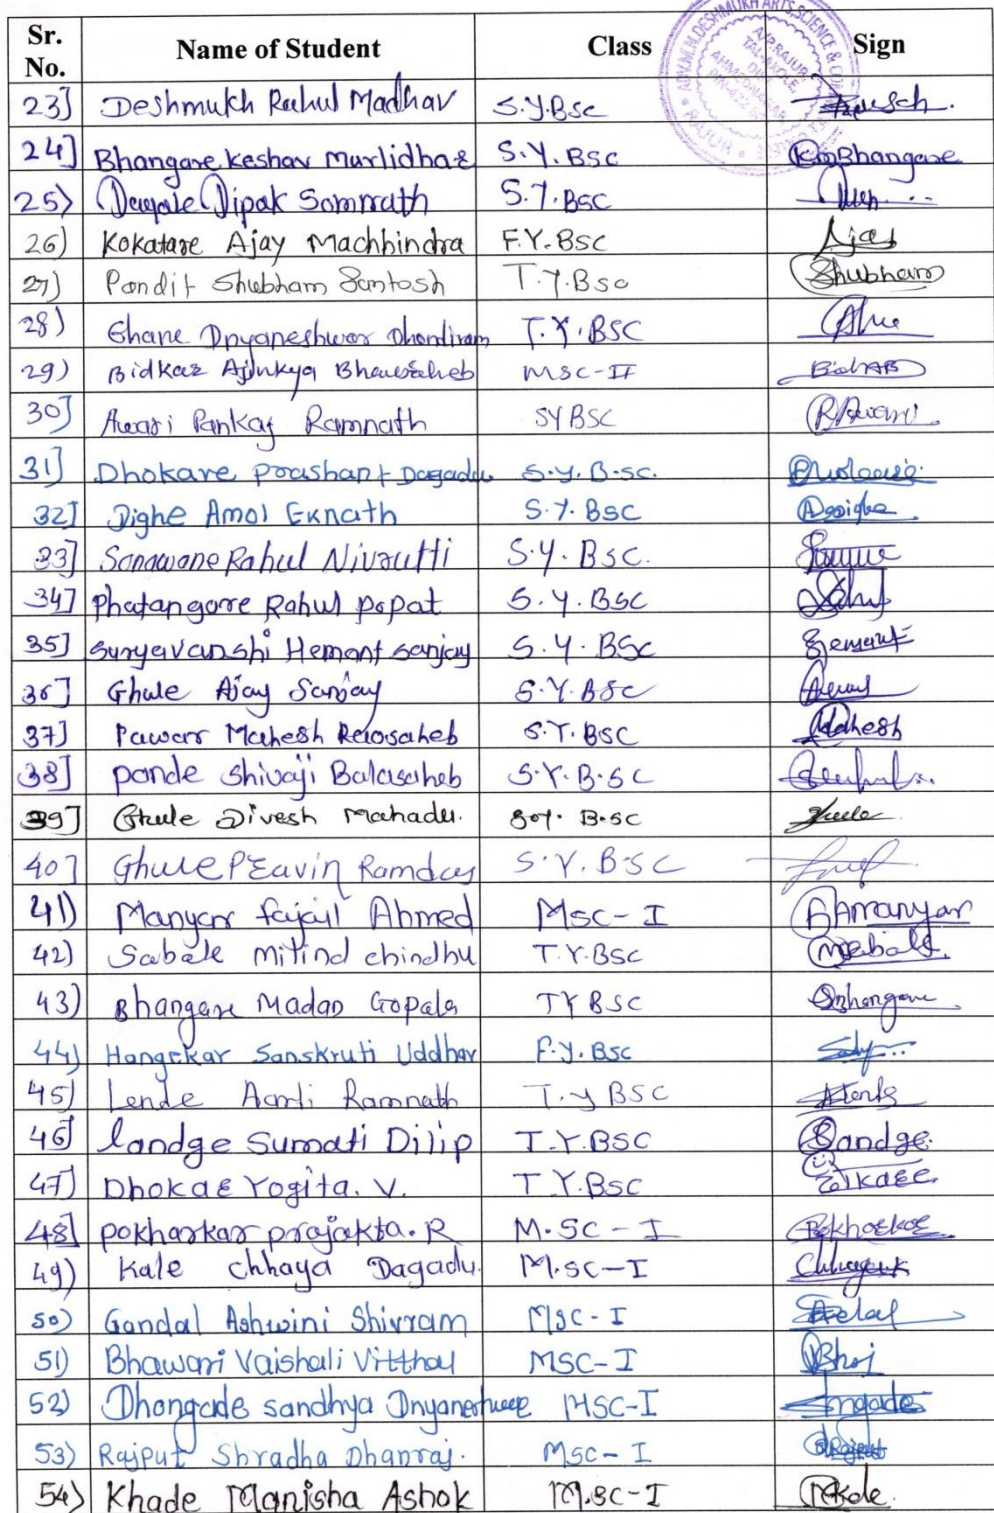 ADV.M.N.DESHMUKH ARTS,SCIENCE & COM
A/P.RAJUR
TAL.AKOLE
RAJUR
Sr. No. Name of Student Class Sign
23] Deshmukh Rahul Madhav S.Y.BSc
24] Bhangare Keshav Murlidhar S.Y.BSC KmBhangare
25) Deshmukh Dipak Somnath S.Y.BSC
26) Kokatare Ajay Machhindra F.Y.BSC Ajay
27) Pandit Shubham Santosh T.Y.BSc Shubham
28) Ghane Dnyaneshwar Dhondiram T.Y.BSC
29) Bidkar Ajinkya Bhausaheb MSC-II BidAB
30] Awari Pankaj Ramnath SYBSC
31] Dhokare Prashant Dagadu S.Y.B.SC.
32] Dighe Amol Eknath S.Y.BSC
33] Sonawane Rahul Nivrutti S.Y.BSC.
34] Phatangare Rahul Popat S.Y.BSC
35] Suryavanshi Hemant Sanjay S.Y.BSC Hemant
36] Ghule Ajay Sanjay S.Y.BSC
37] Pawar Mahesh Raosaheb S.Y.BSC Mahesh
38] Pande Shivaji Balasaheb S.Y.B.SC
39] Ghule Divesh Mahadu. S.Y.B.SC Ghule
40] Ghule Pravin Ramdas S.Y.B.SC
41) Manyar Fajail Ahmed MSC-I FAmanyar
42) Sabale Milind Chindhu T.Y.BSC Msabale
43) Bhangare Madan Gopala TYBSC Bhangare
44) Hangekar Sanskruti Uddhav F.Y.BSC
45) Lende Aarti Ramnath T.Y BSC
46] Landge Sumati Dilip T.Y.BSC Landge
47) Dhokar Yogita.V. T.Y.BSC
48] Pokharkar Prajakta.R M.SC-I Pokharkar
49) Kale Chhaya Dagadu. M.SC-I
50) Gondal Ashwini Shivram MSC-I
51) Bhawari Vaishali Vitthal MSC-I
52) Dhongade Sandhya Dnyaneshwar MSC-I
53) Rajput Shradha Dhanraj. MSC-I
54) Khade Manisha Ashok M.SC-I